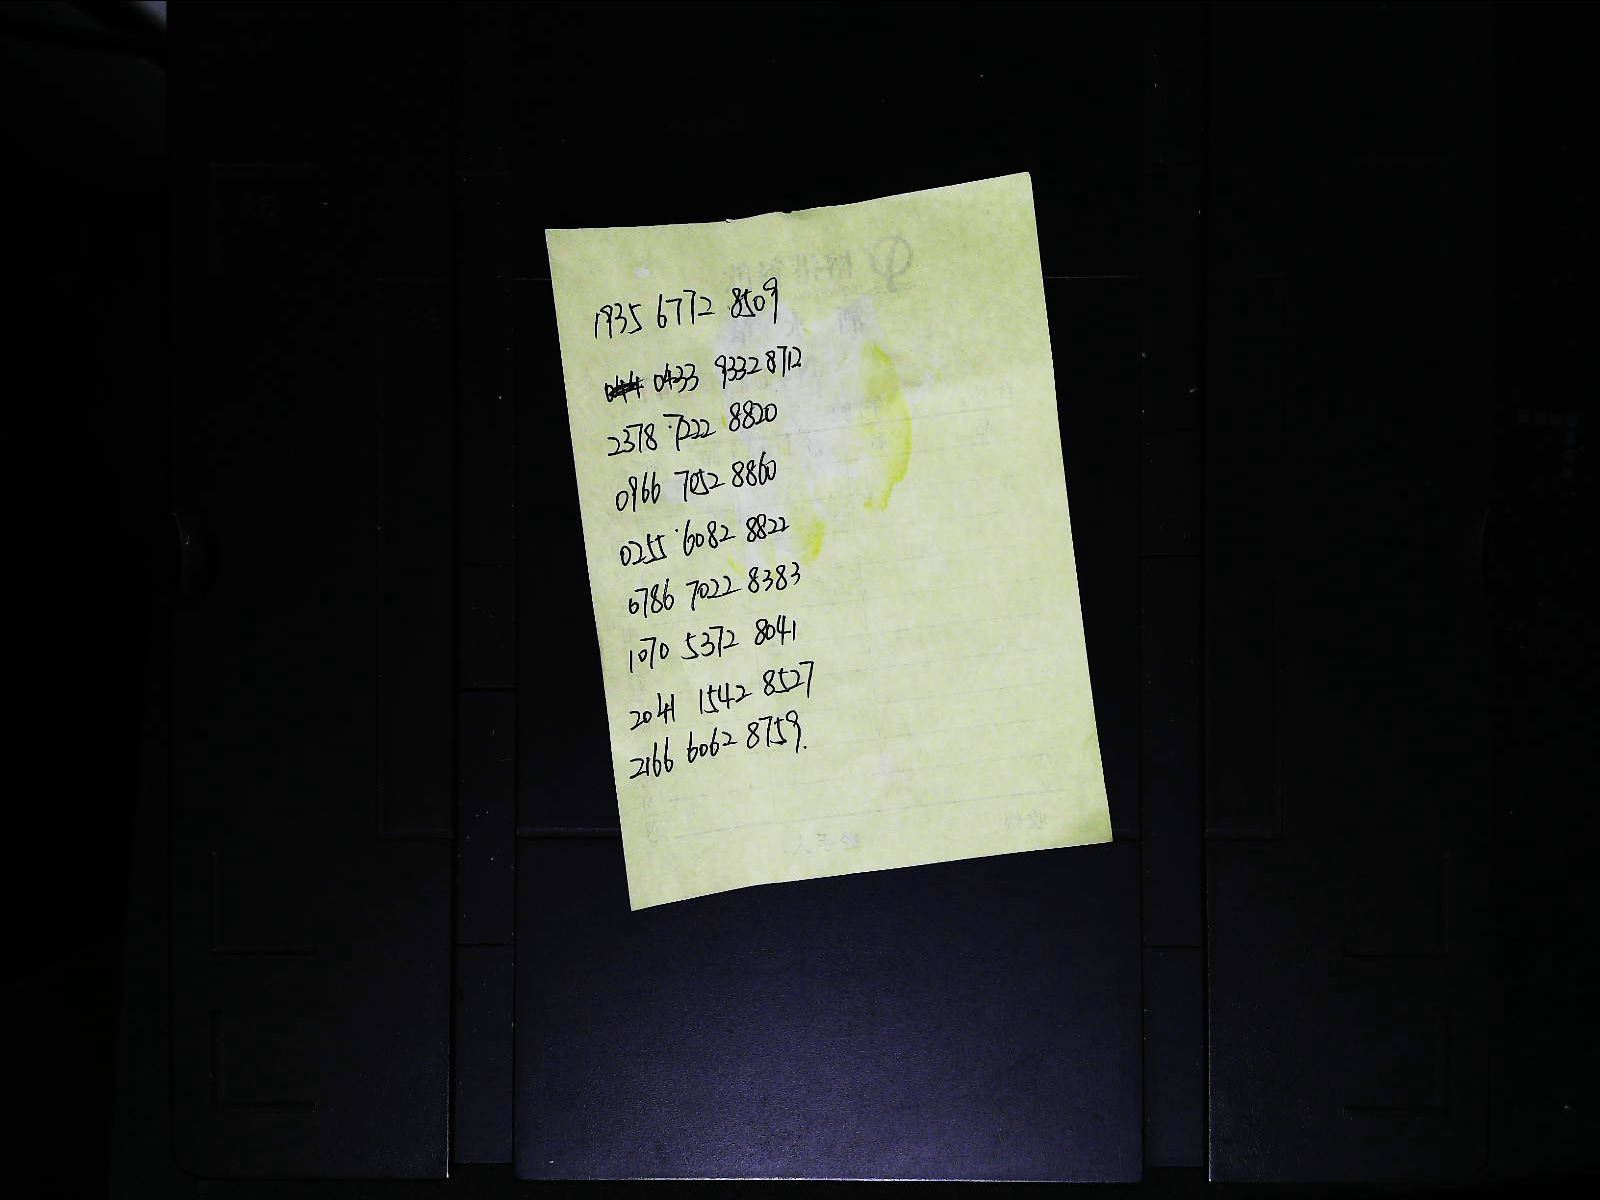 1935 6772 8509
0433 9332 8712
2378 7222 8820
0966 7052 8860
0255 6082 8822
6786 7022 8383
1070 5372 8041
2041 1542 8527
2166 6062 8759.